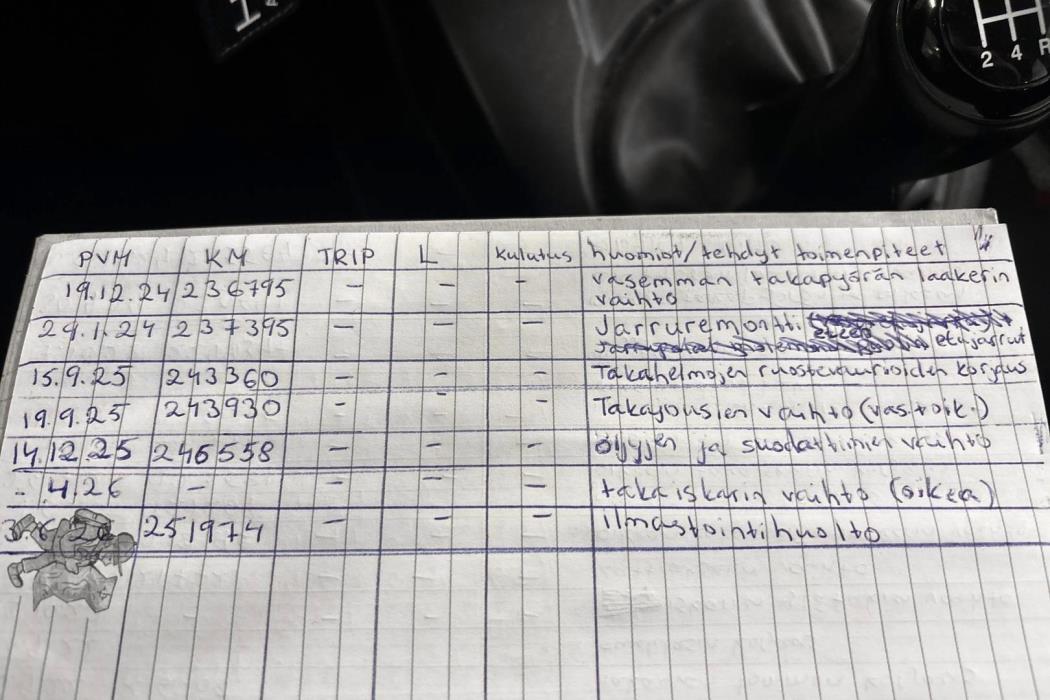 2 4 R
PVM KM TRIP L Kulutus huomiot/tehdyt toimenpiteet
19.12.24 236795 – – – vasemman takapyörän laakerin
vaihto
29.1.24 237395 – – – Jarruremontti
etujarrut
15.9.25 243360 – – – Takahelmojen ruostevaurioiden korjaus
19.9.25 243930 – – – Takajousien vaihto (vas. + oik.)
14.12.25 246558 – – – öljyjen ja suodattimien vaihto
. 4.26 – – – – takaiskarin vaihto (oikea)
251974 – – – ilmastointihuolto